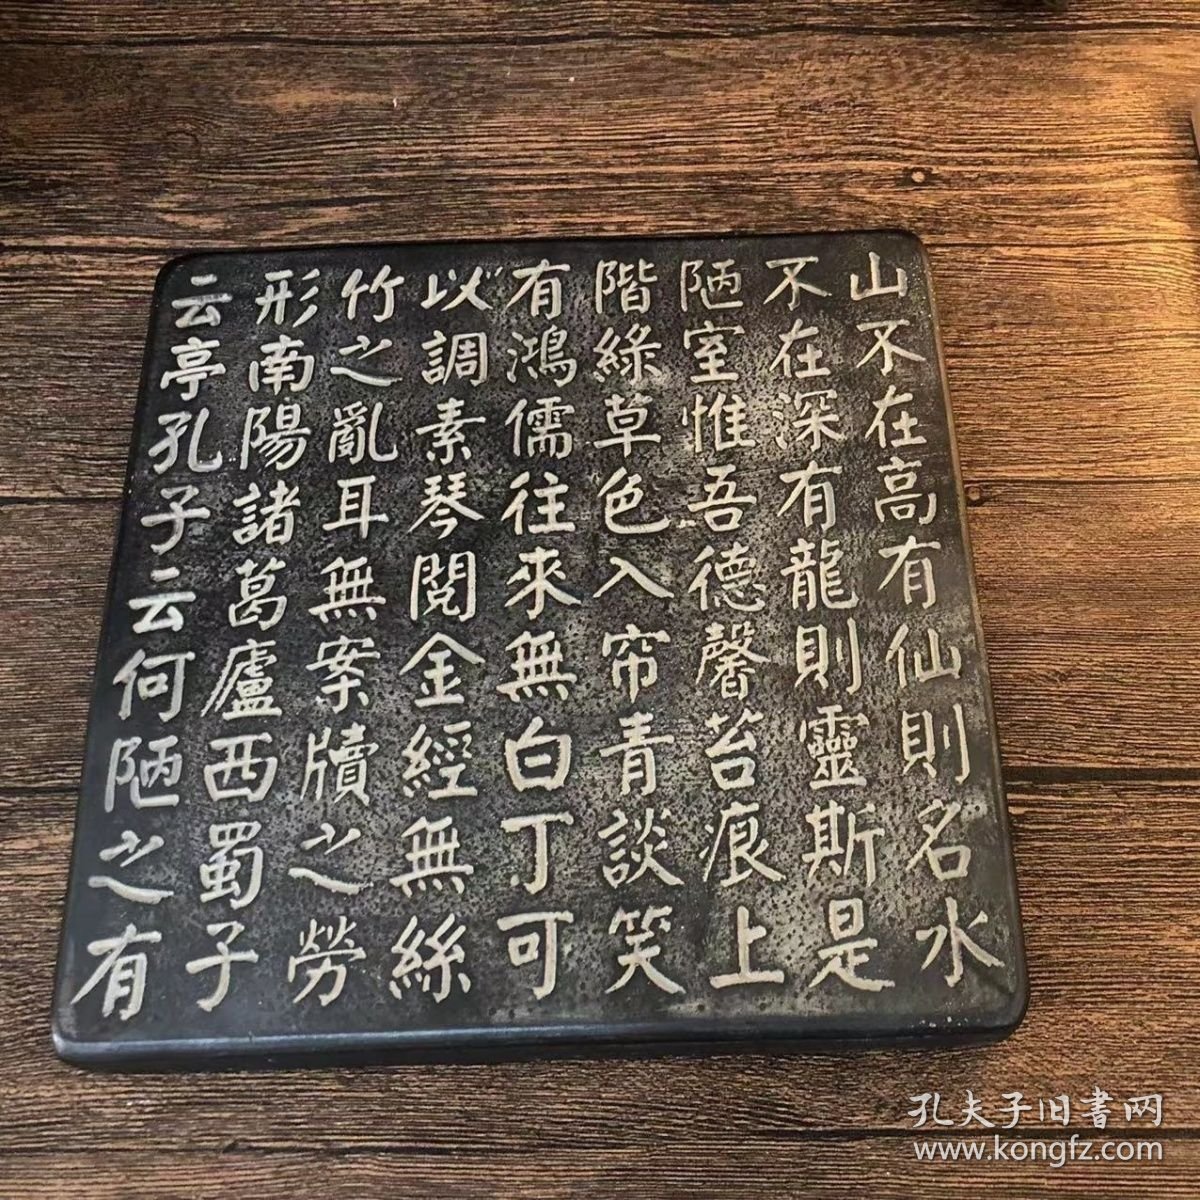 山不在高有仙則名水
不在深有龍則靈斯是
陋室惟吾德馨苔痕上
階綠草色入帘青談笑
有鴻儒往來無白丁可
以調素琴閱金經無絲
竹之亂耳無案牘之勞
形南陽諸葛廬西蜀子
云亭孔子云何陋之有
孔夫子旧書网
www.kongfz.com